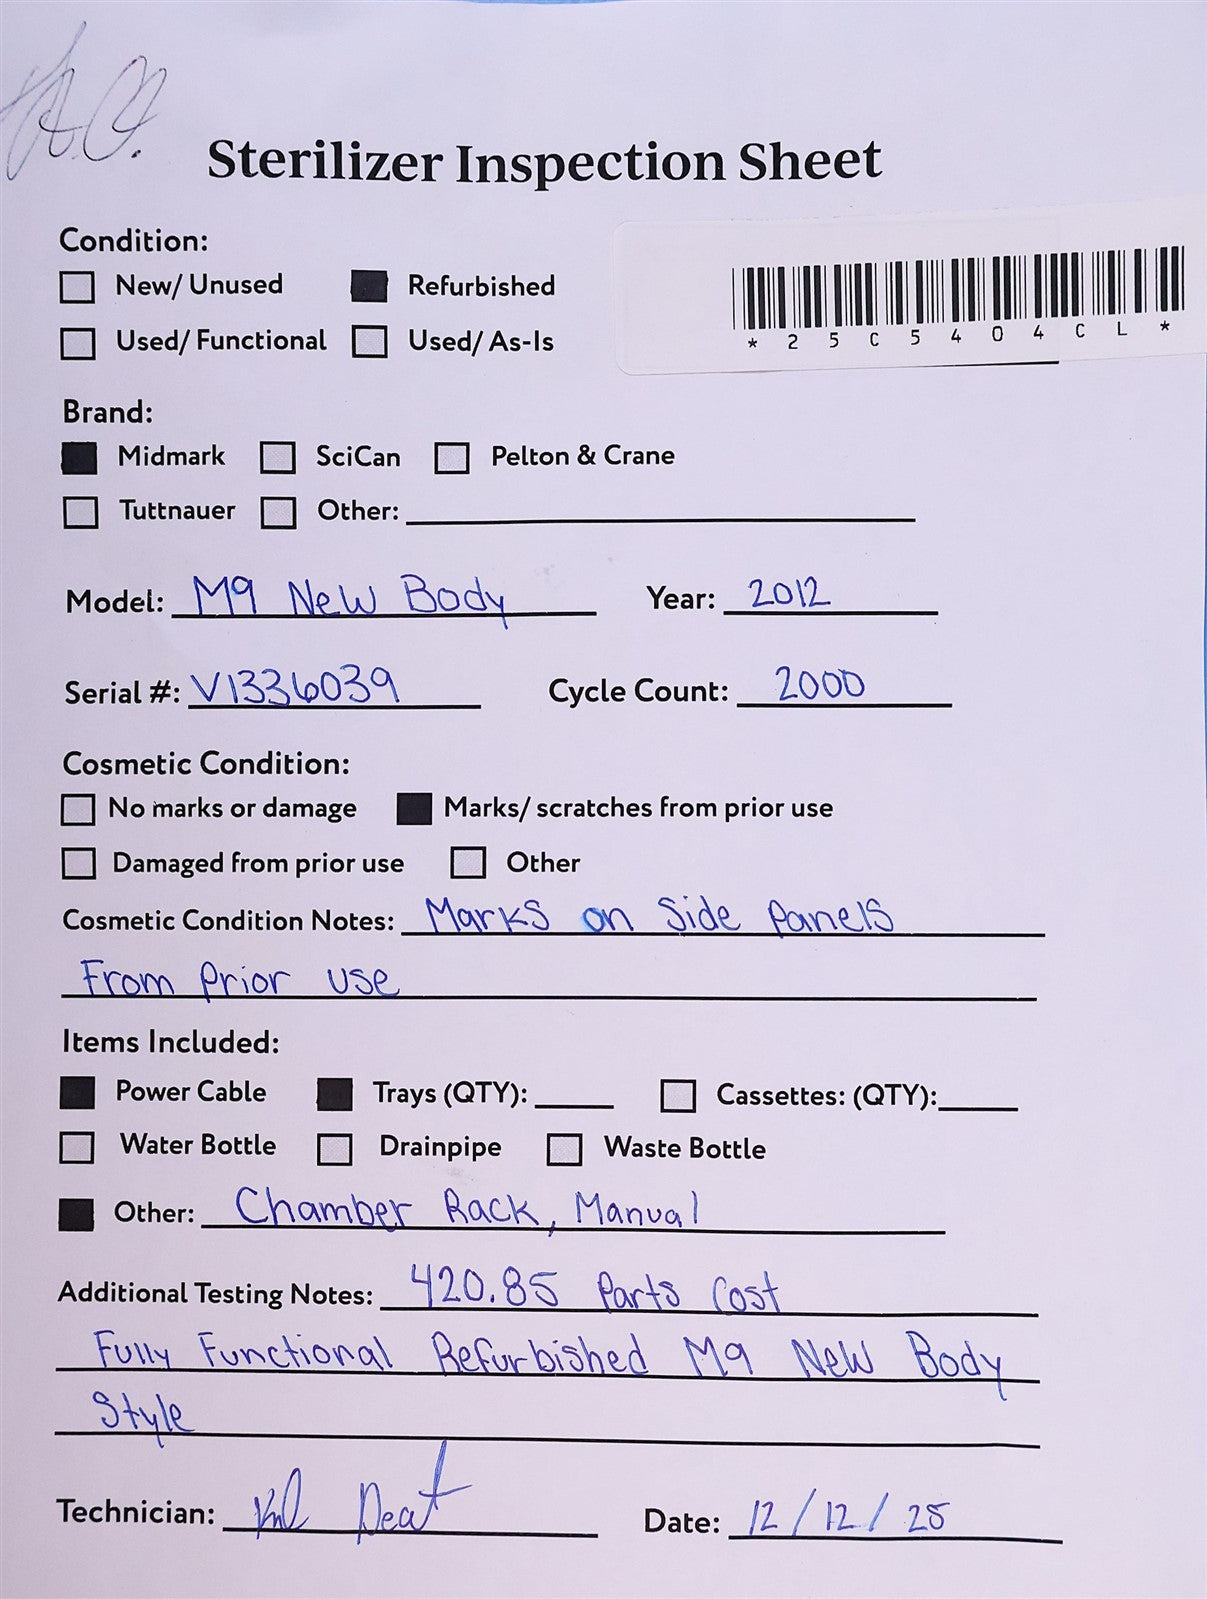 A.C.
Sterilizer Inspection Sheet
Condition:
New/ Unused Refurbished
Used/ Functional Used/ As-Is
* 2 5 C 5 4 0 4 C L *
Brand:
Midmark SciCan Pelton & Crane
Tuttnauer Other:
Model: M9 New Body Year: 2012
Serial #: V1336039 Cycle Count: 2000
Cosmetic Condition:
No marks or damage Marks/ scratches from prior use
Damaged from prior use Other
Cosmetic Condition Notes: Marks on Side Panels
From Prior use
Items Included:
Power Cable Trays (QTY): Cassettes: (QTY):
Water Bottle Drainpipe Waste Bottle
Other: Chamber Rack, Manual
Additional Testing Notes: 420.85 Parts Cost
Fully Functional Refurbished M9 New Body
Style
Technician:
Date: 12/12/25